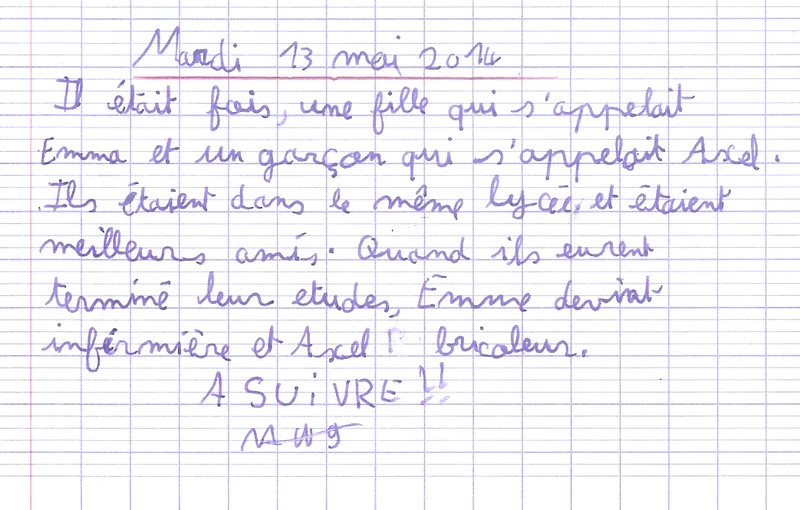 Mardi 13 mai 2014
Il était fois, une fille qui s'appelait
Emma et un garçon qui s'appelait Axel.
Ils étaient dans le même lycée, et étaient
meilleurs amis. Quand ils eurent
terminé leur etudes, Emme devint
infirmière et Axel bricoleur.
A SUiVRE !!